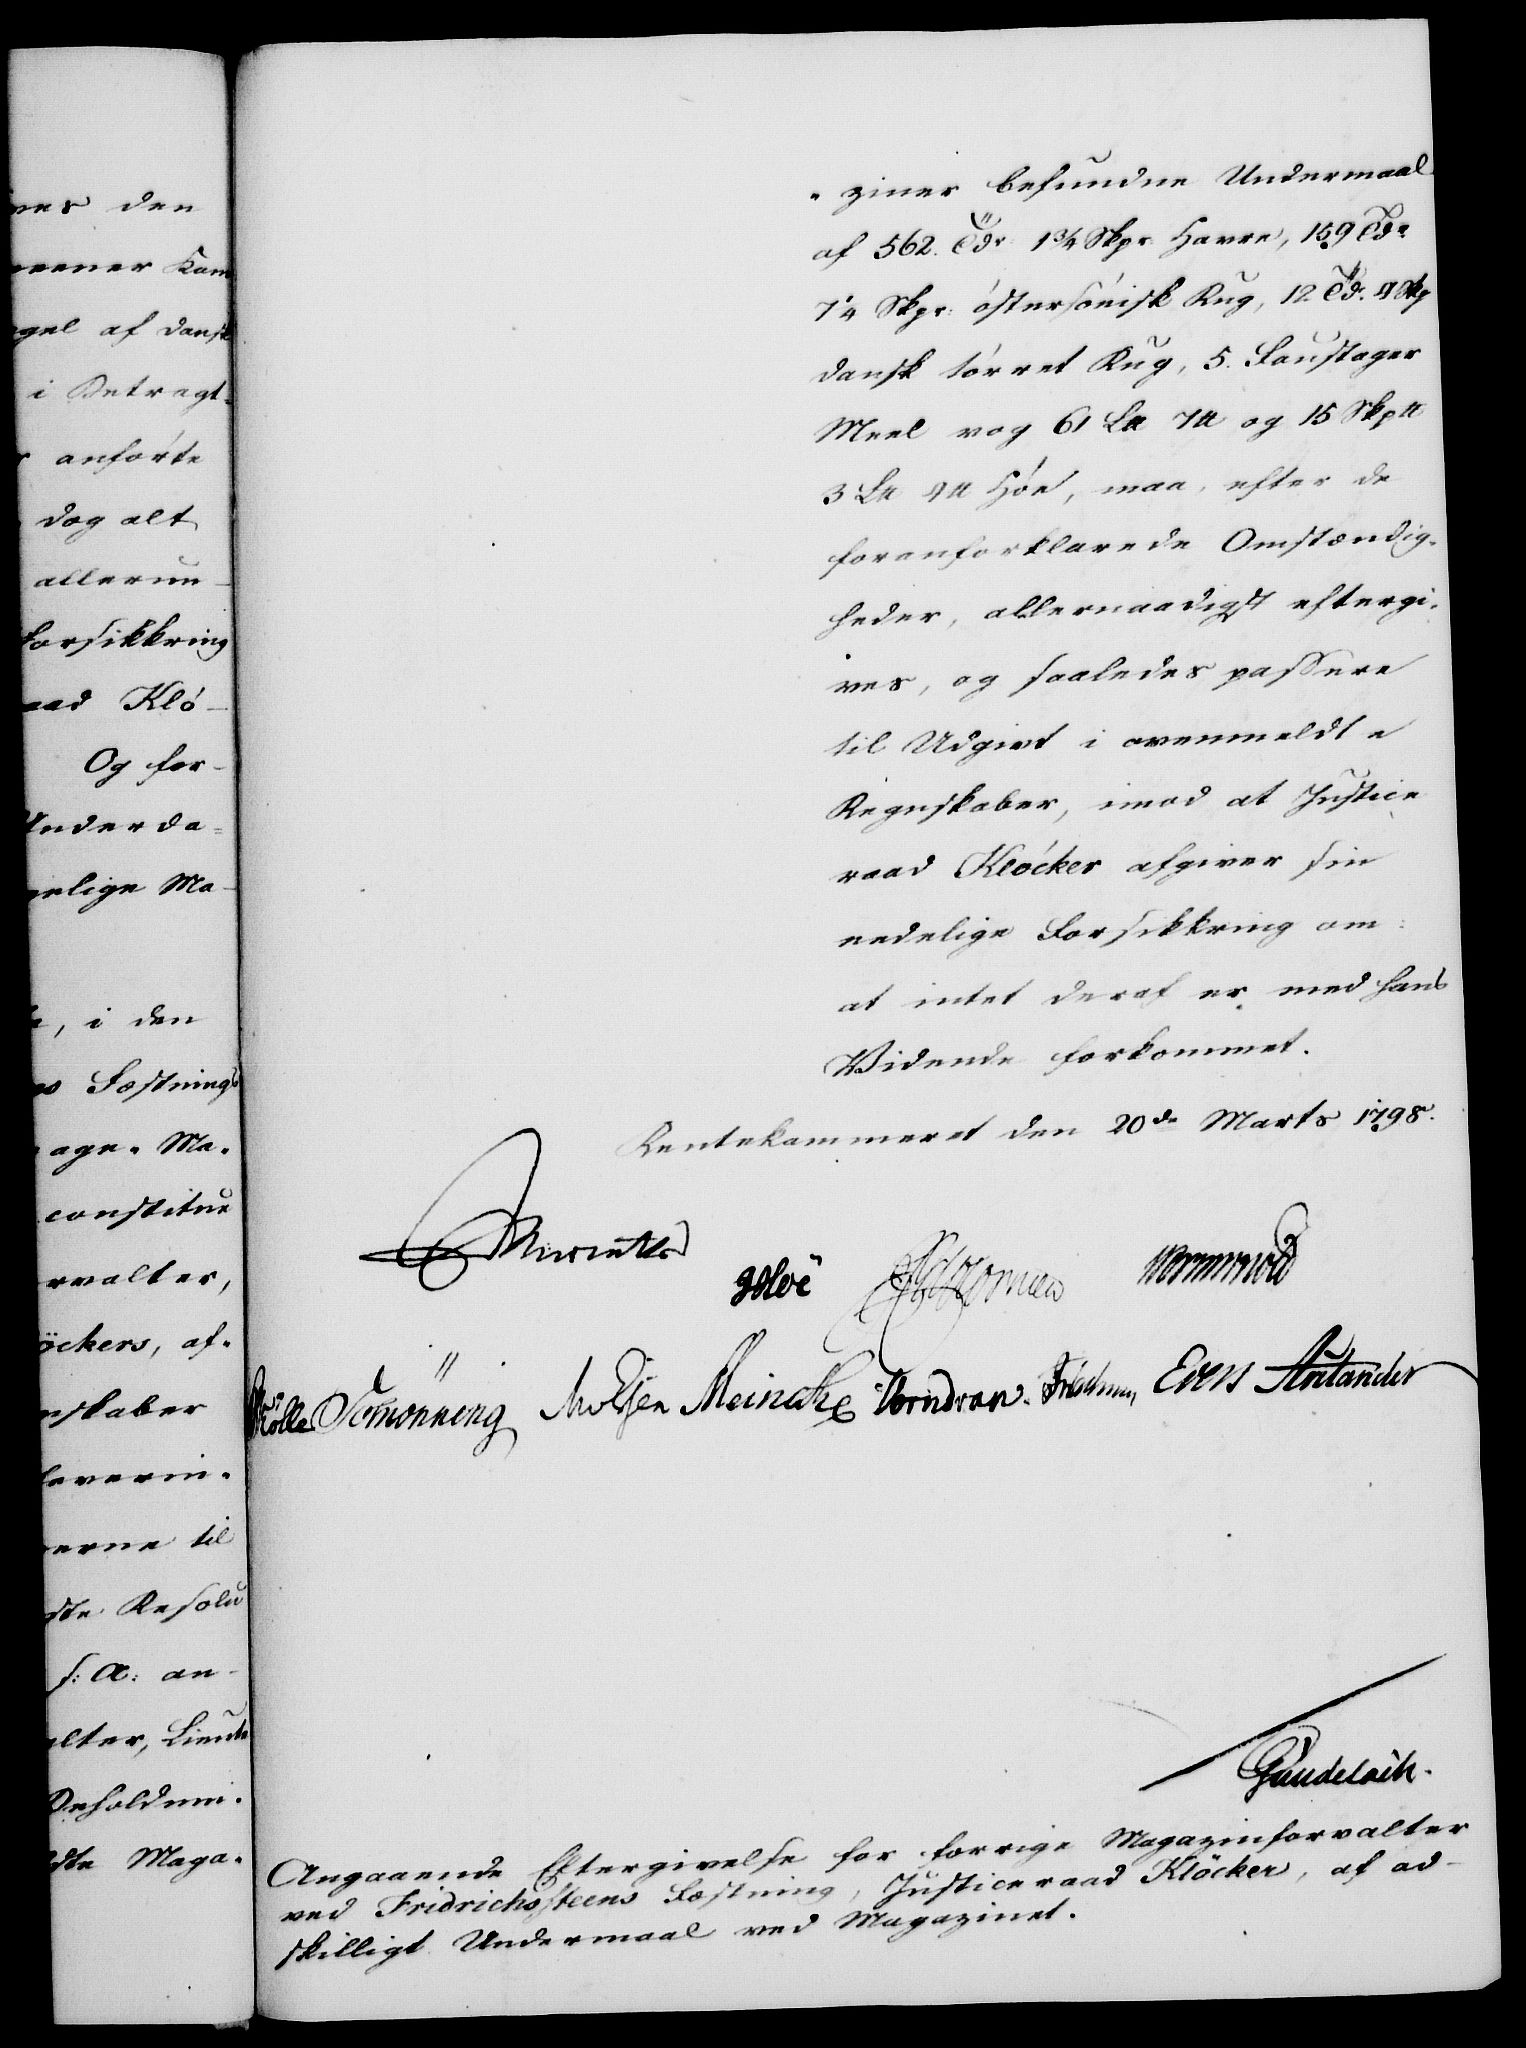 nes den
meener Kam
ngel af dansk
i Betragt-
r anförte
dog alt
allerun-
Forsikkring
raad Klö-
Og for-
Underda-
melige Ma-
, i den
Fæstnings
nage- Ma-
constitue
rvalter,
öckers, af-
nskaber
leverin-
erne til
dte Resolu
s: A: an-
alter, Lieute
Beholdnin-
dte Maga-
-ziner befundne Undermaal
af 562. Tdr 1¾ Skpr Havre, 159 Tdr
7¼ Skpr: östersöisk Rug, 12 Tdr. 4 Skp
dansk törret Rug, 5. Faustager
Meel vog 61 L℔ 7℔ og 15 Skp℔
3 L℔ 4℔ Höe, maa, efter de
foranforklarede Omstændig-
heder, allernaadigst eftergi-
ves, og saaledes passere
til Udgivt i ovenmeldte
Regnskaber, imod at Justice
raad Klöcker afgiver sin
eedelige Forsikkring om:
at intet deraf er med hans
Vidende forkommet.
Rentekammeret den 20de Marts 1798.
Wormskiold
Rölle Schmönning Meincke Vorndran. Even Aulander
Gundelach.
Angaaende Eftergivelse for forrige Magazinforvalter
ved Fridrichssteens Fæstning, Justiceraad Klöcker, af ad-
skilligt Undermaal ved Magazinet.